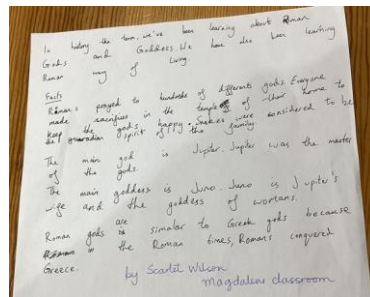 In history this term, we've been learning about Roman
Gods and Goddess. We have also been learning
Roman way of living.
Facts
Romans prayed to hundreds of different gods. Everyone
made sacrifices in the temple of their home to
keep the gods happy. Snakes were considered to be
the guardian spirit of the family
The main god is Jupiter. Jupiter was the master
of the gods.
The main goddess is Juno. Juno is Jupiter's
wife and the goddess of womans.
Roman gods are simalar to Greek gods because
in the Roman times, Romans conquered
Greece.
by Scarlet Wilson
Magdalene classroom